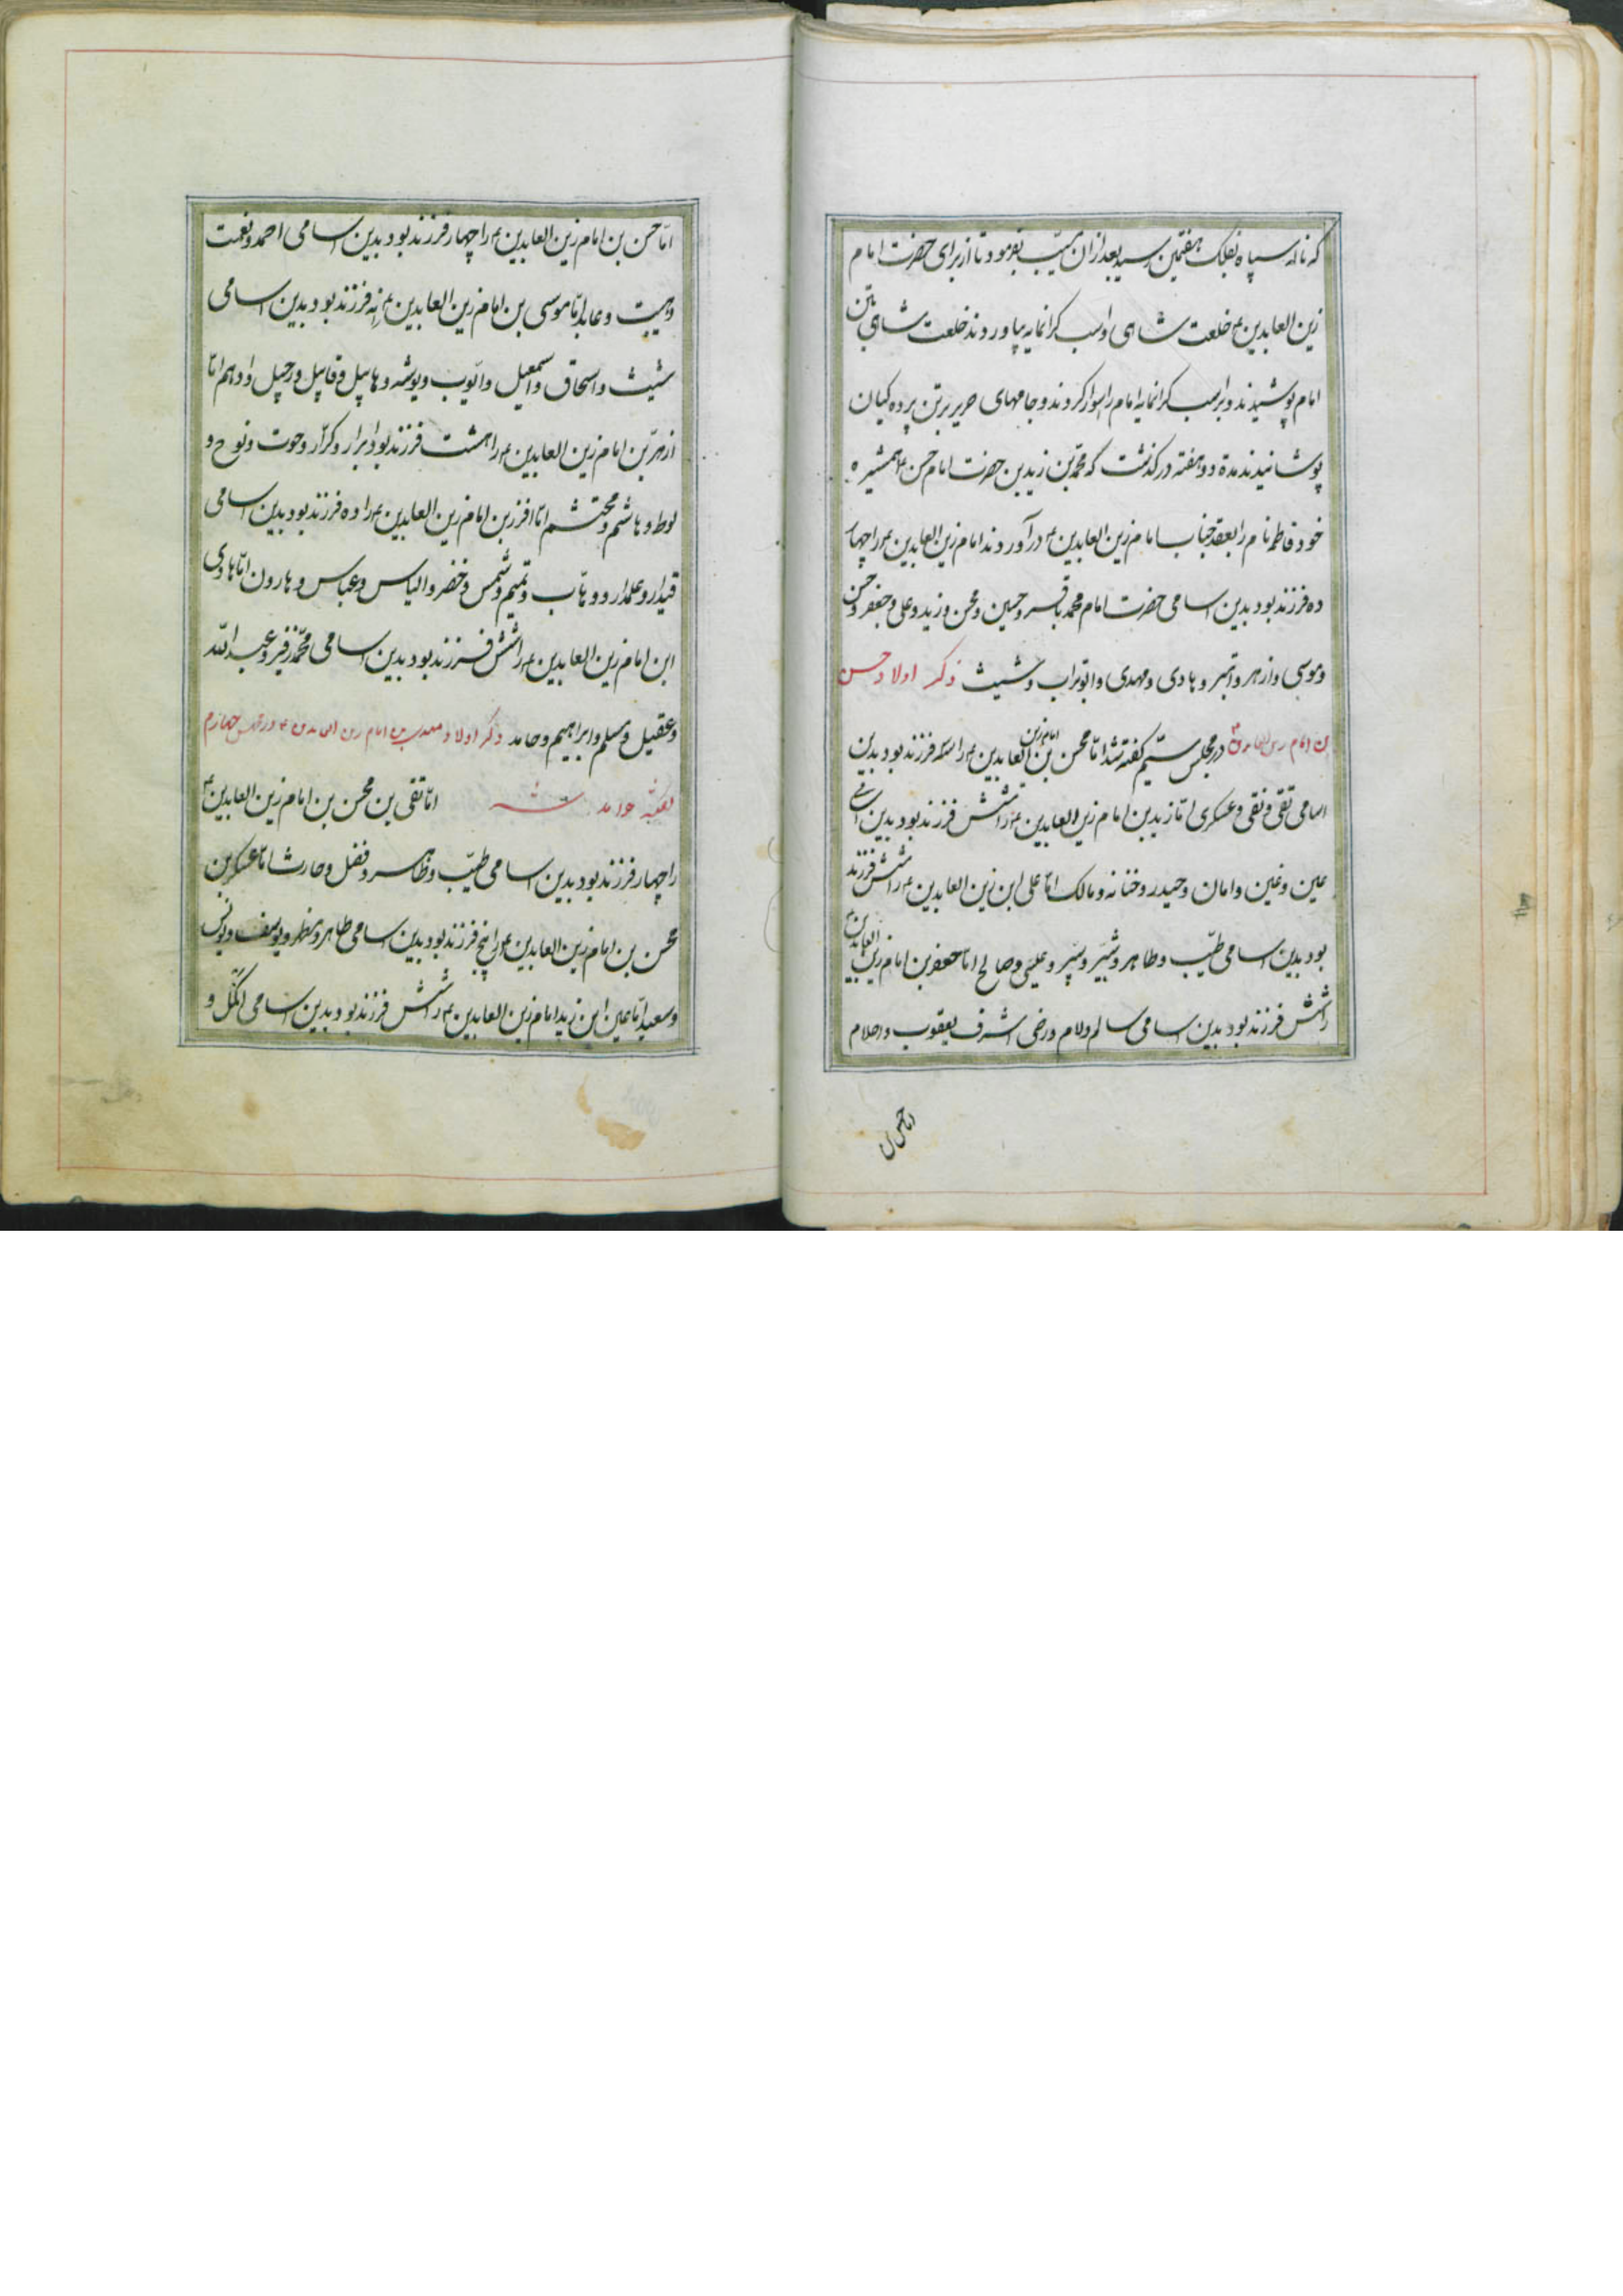 که ناله سپاه بفلک هفتمین رسید بعد از ان مسیب بفرمود تا از برای حضرت امام
زین العابدین ع خلعت شاهی و اسب کرانمایه بیاوردند خلعت شاهی بتن
امام پوشیدند و بر اسب کرانمایه امام را سوار کردند و جامهای حریر بر تن پرده کیان
پوشانیدند مدة دو هفته در کذشت که محمد بن زید بن حضرت امام حسن ع همشیره
خود فاطمه نام را بعقد جناب امام زین العابدین ع در آوردند امام زین العابدین ع را چهار
ده فرزند بود بدین اسامی حضرت امام محمد باقر و حسین و محسن و زید و علی و جعفر و حسن
و موسی و ازهر و و هادی و مهدی و ابوتراب و شیث ذکر اولاد حسن
بن امام زین العابدین ع در مجلس ستیم کفته شد امّا محسن بن امام زین العابدین ع را سه فرزند بود بدین
اسامی تقی و نقی و عسکری امّا زید بن امام زین العابدین ع را شش فرزند بود بدین اسامی
عین و غین و امان و حیدر و و مالک امّا علی ابن زین العابدین ع را شش فرزند
بود بدین اسامی طیّب و طاهر و شبّر و و عیسی و صالح امّا جعفر بن امام زین العابدین ع
را شش فرزند بود بدین اسامی سالم و لام و رضی اشرف یعقوب و احلام
امّا حسن بن
امّا حسن بن امام زین العابدین ع را چهار فرزند بود بدین اسامی احمد و نعمت
و هیبت و عابد امّا موسی بن امام زین العابدین ع را نه فرزند بود بدین اسامی
شیث و اسحاق و اسمعیل و ایّوب و یوشه و هابیل و قابیل و رحیل و ادهم امّا
ازهر بن امام زین العابدین ع را هشت فرزند بود ابرار و کرّار و حوت و نوح و
لوط و هاشم و محتشم امّا بن امام زین العابدین ع را ده فرزند بود بدین اسامی
قیدار و علمدار و وهّاب و تمیم و شمس و خضر و الیاس و عباس و هارون امّا هادی
ابن امام زین العابدین ع را شش فرزند بود بدین اسامی محمّد و عبد الله
و عقیل و مسلم و ابراهیم و حامد ذکر اولاد بن امام زین العابدین ع در مجلس چهارم
کفته خواهد شد امّا تقی بن محسن بن امام زین العابدین ع
را چهار فرزند بود بدین اسامی طیّب و طاهر و فضل و حارث امّا عسکر بن
محسن بن امام زین العابدین ع را پنج فرزند بود بدین اسامی طاهر و مطهر و یوسف و یونس
و سعید امّا عین ابن زید امام زین العابدین ع را شش فرزند بود بدین اسامی و